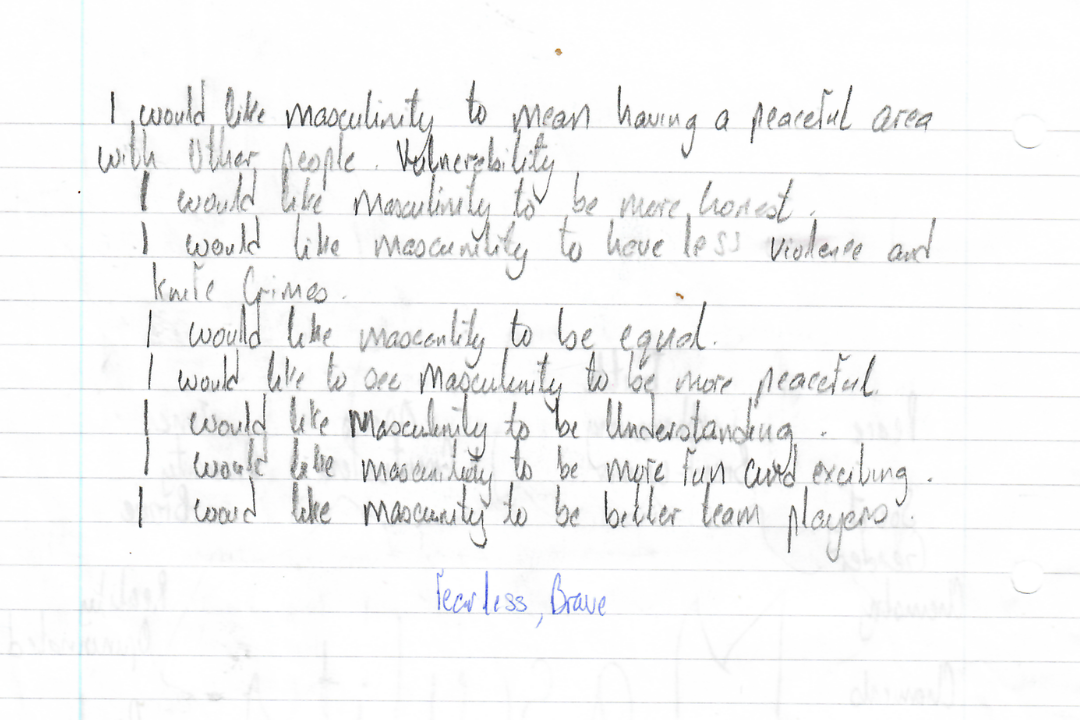 I would like masculinity to mean having a peaceful area
with other people. Vulnerability
I would like masculinity to be more honest.
I would like mascunility to have less violence and
knife Crimes.
I would like mascanlity to be equal.
I would like to see Masculenity to be more peaceful.
I would like Masculenity to be Understanding.
I would like mascunlity to be more fun and exciting.
I would like Mascunity to be better team players.
Fearless, Brave